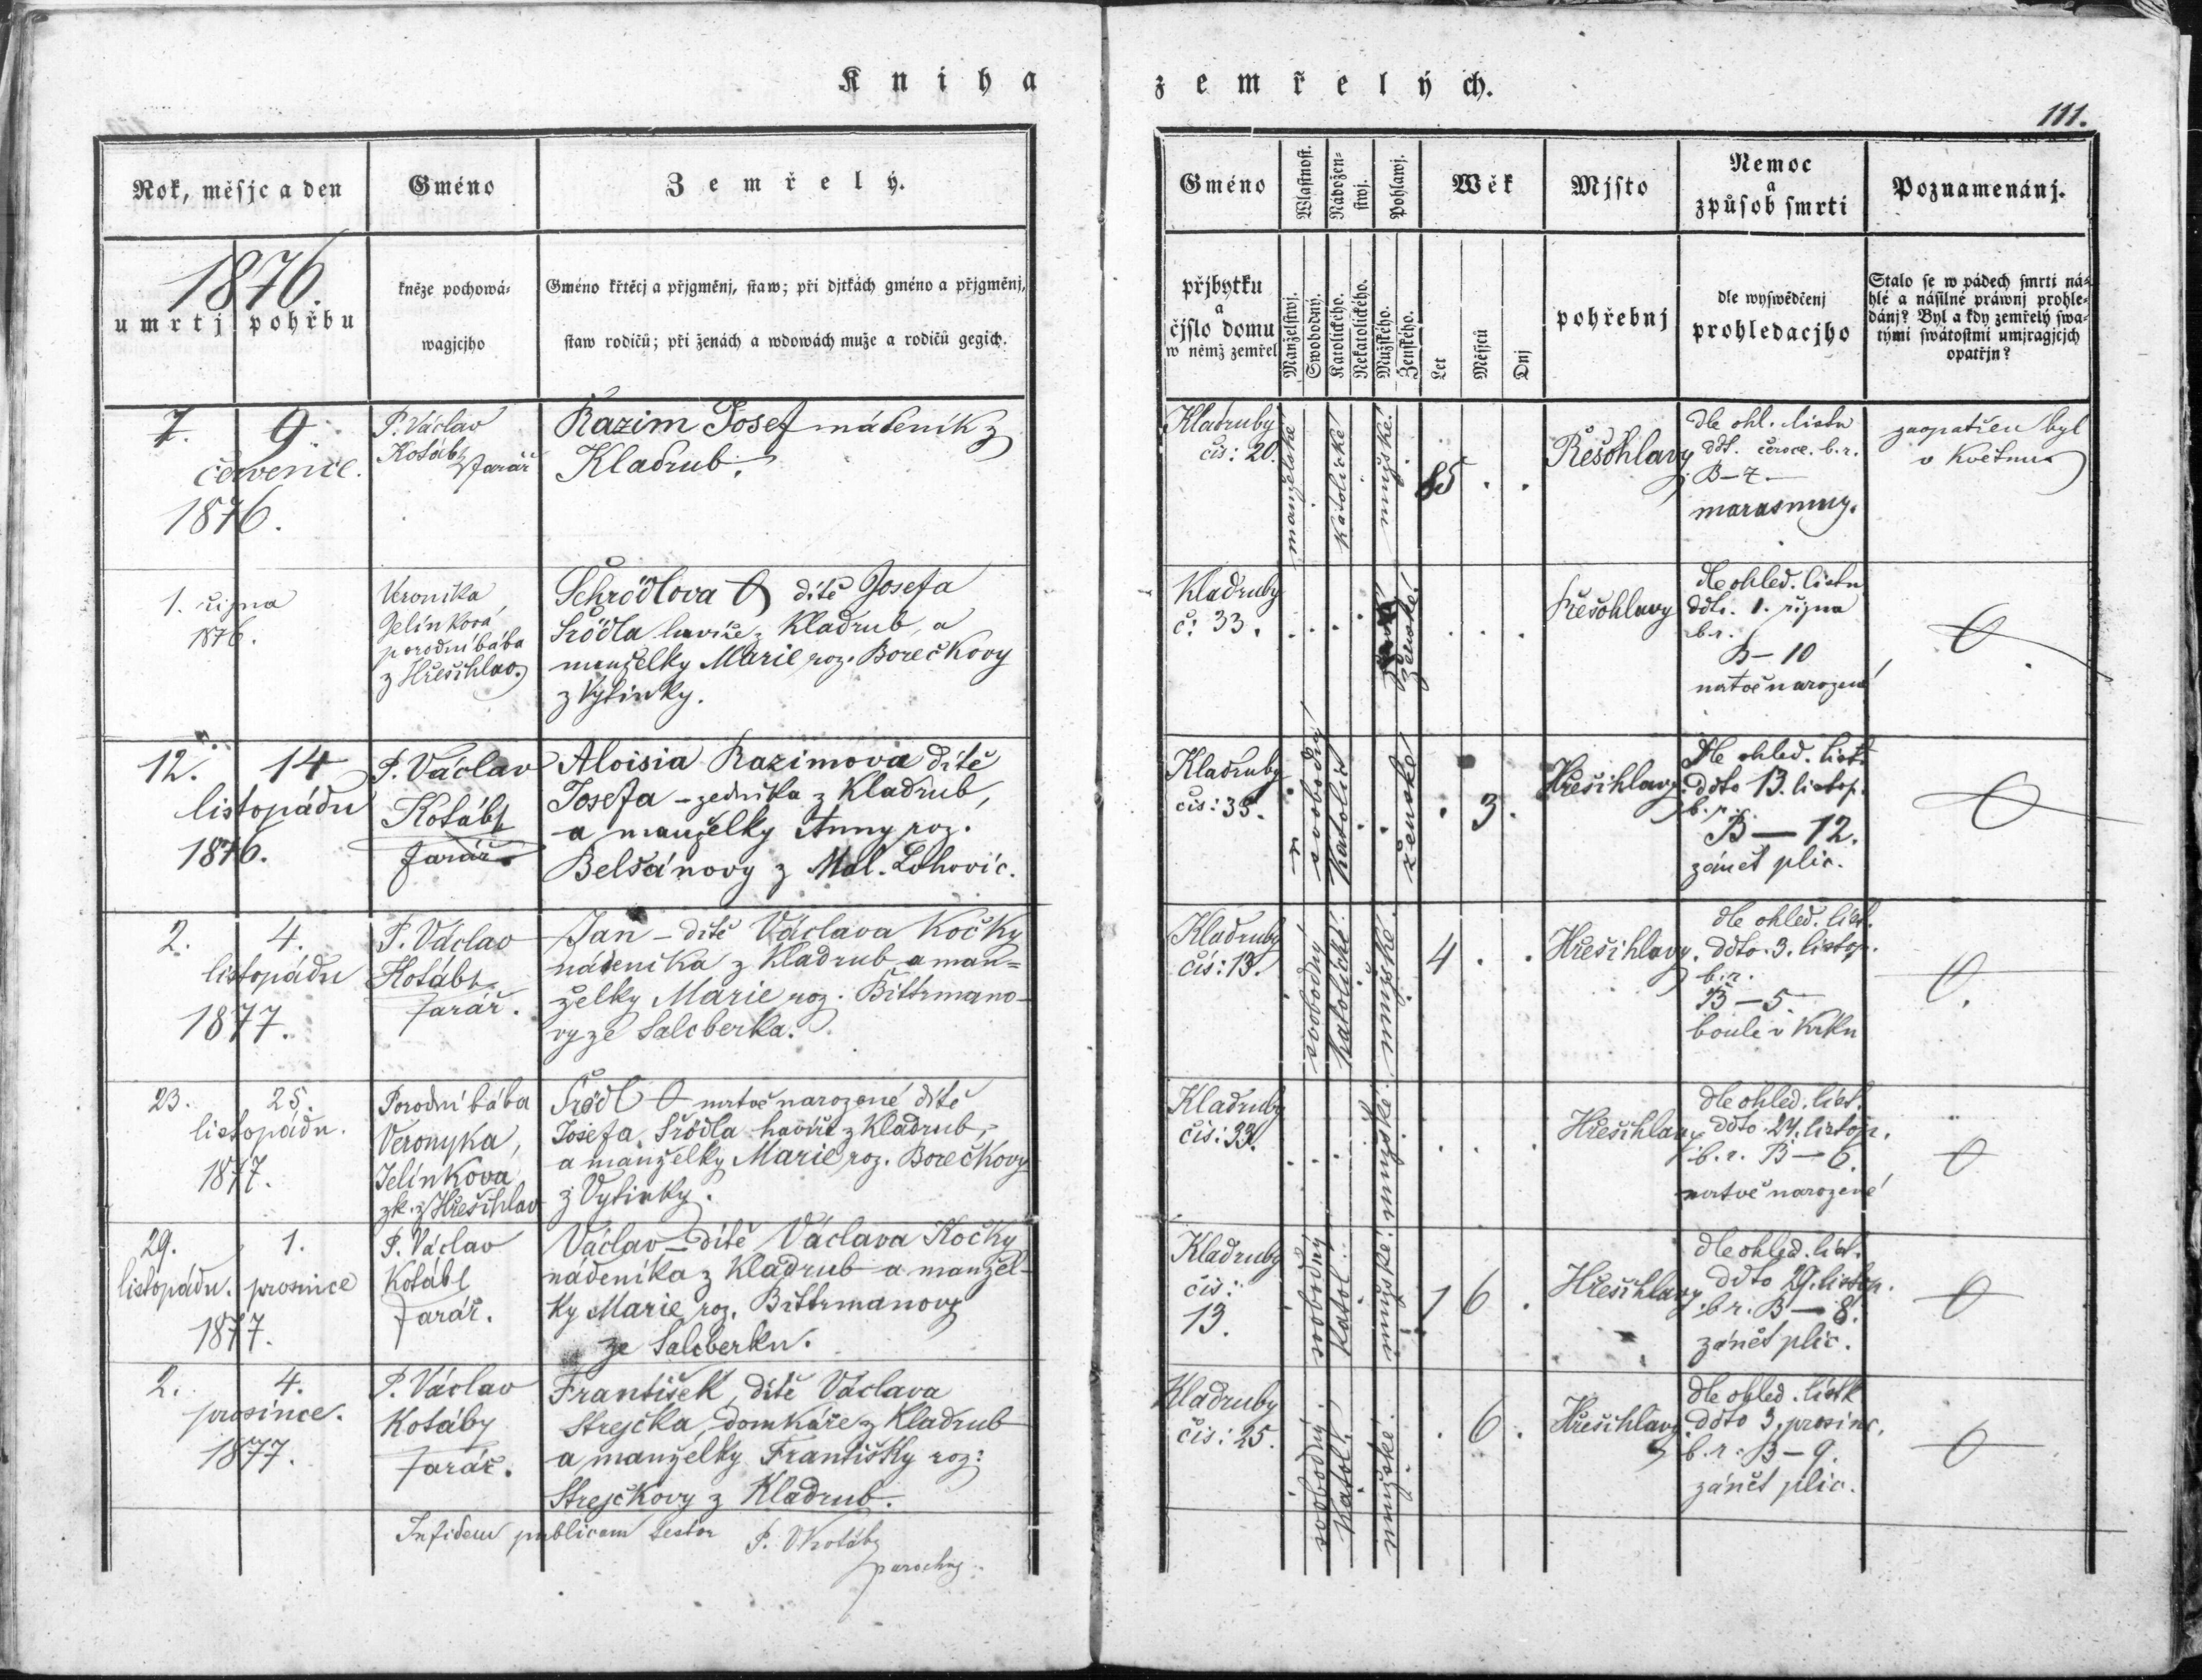 Kniha zemřelých.
111.
Rok, měsjc a den
Gméno
Zemřelý.
Gméno
Wlastnost.
Náboženstwj.
Pohlawj.
Wěk
Mjsto
Nemoc
a
způsob smrti
Poznamenánj.
1876.
umrtj pohřbu
kněze pochowá-
wagjcjho
Gméno křtěcj a přjgměnj, staw; při djtkách gméno a přjgměnj,
staw rodičů; při ženách a wdowách muže a rodičů gegich.
přjbytku
a
čjslo domu
w němž zemřel
Manželstwj.
Swobodný.
Katolického.
Nekatolického.
Mužského.
Ženského.
Let
Měsjců
Dnj
pohřebnj
dle wyswědčenj
prohledacjho
Stalo se w pádech smrti ná-
hlé a násilné práwnj prohle-
dánj? Byl a kdy zemřelý swa-
tými swátostmi umjragjcjch
opatřjn?
7. 9.
července.
1876.
P. Václav
Kotábl
farář
Razim Josef nádeník z
Kladrub.
Kladruby
čís: 20.
manželské
katolické
mužské.
85 . .
Řešohlavy
dle ohl. listu
ddt. červce. b. r.
B–7.
marasmus.
zaopatřen byl
v květnu
1. října
1876.
Veronika
Jelínková
porodní bába
z Hřešihlav.
Schrödlova O dítě Josefa
Šrödla havíře z Kladrub, a
manželky Marie roz. Borečkovy
z Vytinky.
Kladruby
č: 33.
ženské.
. . .
Řešohlavy
dle ohled. listu
ddto. 1. října
b. r.
B–10
mrtvě narozené
O
12. 14
listopádu
1876.
P. Václav
Kotábl
farář
Aloisia Razimova dítě
Josefa – zedníka z Kladrub,
a manželky Anny roz.
Belšánovy z Mal. Lohovic.
Kladruby
čís: 35.
svobodný
katolic
ženské
. 3.
Hřešihlavy.
dle ohled. list.
ddto 13. listop.
b. r.
B – 12.
zánět plic.
O
2. 4.
listopádu
1877.
P. Václav
Kotábl
farář.
Jan – dítě Václava Kočky
nádeníka z Kladrub a man=
želky Marie roz. Bittrmano-
vy ze Salcberka.
Kladruby
čís: 13.
svobodný
katolické
mužské.
4 . .
Hřešihlavy.
dle ohled. list.
ddto. 3. listop.
b. r.
B – 5.
boule v krku
O.
23. 25.
listopádu.
1877.
Porodní bába
Veronyka,
Jelínkova
zk. z Hřešihlav
Šrödl O mrtvě narozené dítě
Josefa Šrödla havíře z Kladrub,
a manželky Marie roz. Borečkovy
z Vytinky.
Kladruby
čís: 33.
mužské.
. . .
Hřešihlavy
dle ohled. list.
ddto 24. listop.
b. r. B – 6.
mrtvě narozené
O
29. 1.
listopádu. prosince
1877.
P. Václav
Kotábl
farář.
Václav – dítě Václava Kočky
nádeníka z Kladrub a manžel-
ky Marie roz. Bittrmanovy
ze Salcberku.
Kladruby
čís:
13.
svobodný
katol.
mužské.
1 6 .
Hřešihlavy
dle ohled. list.
ddto 29. listop.
b r. B – 8.
zánět plic.
O
2. 4.
prosince.
1877.
P. Václav
Kotáby
farář.
František, dítě Václava
Strejčka, domkáře z Kladrub
a manželky Františky roz:
Strejčkovy z Kladrub.
Kladruby
čís: 25.
svobodný.
katol.
mužské.
. 6 .
Hřešihlavy
dle ohled. listk
ddto 3. prosinc.
b. r. B – 9.
zánět plic.
O
In fidem publicam testor P. V. Kotáby
parochus.